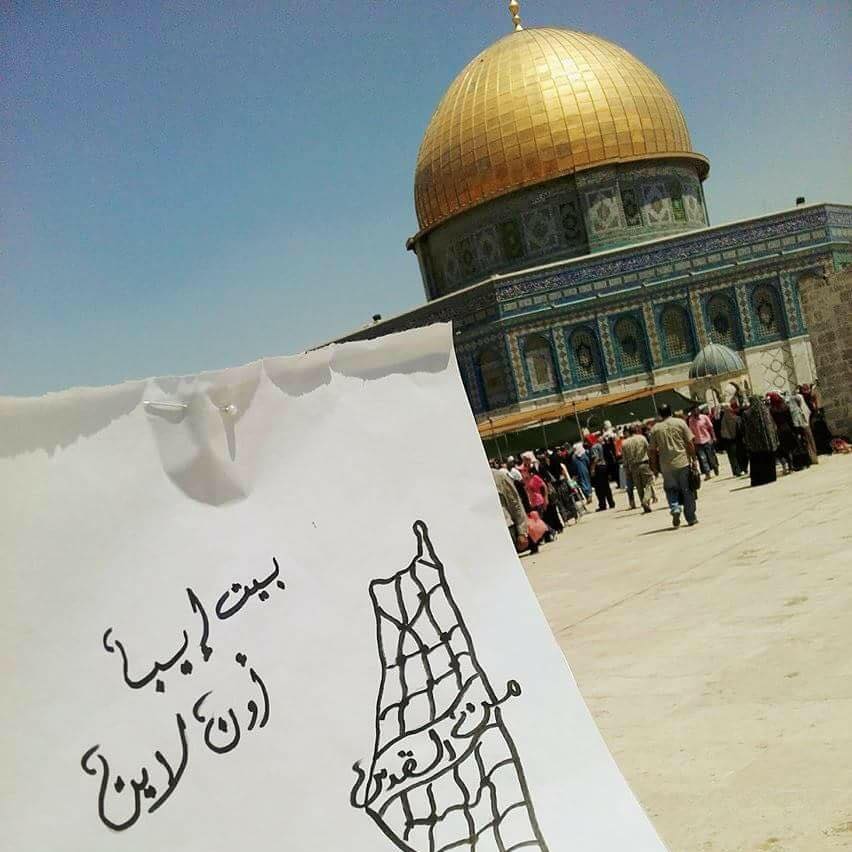 بيت إيبا
أون لاين
من القدس